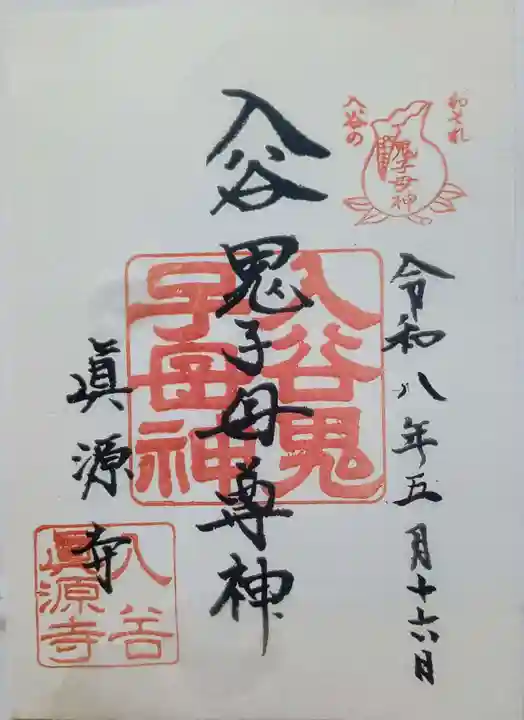 おそれ
入谷の
鬼子母神
令和八年五月十六日
入谷鬼子母尊神
入谷鬼
子母神
眞源寺
入谷
眞源寺